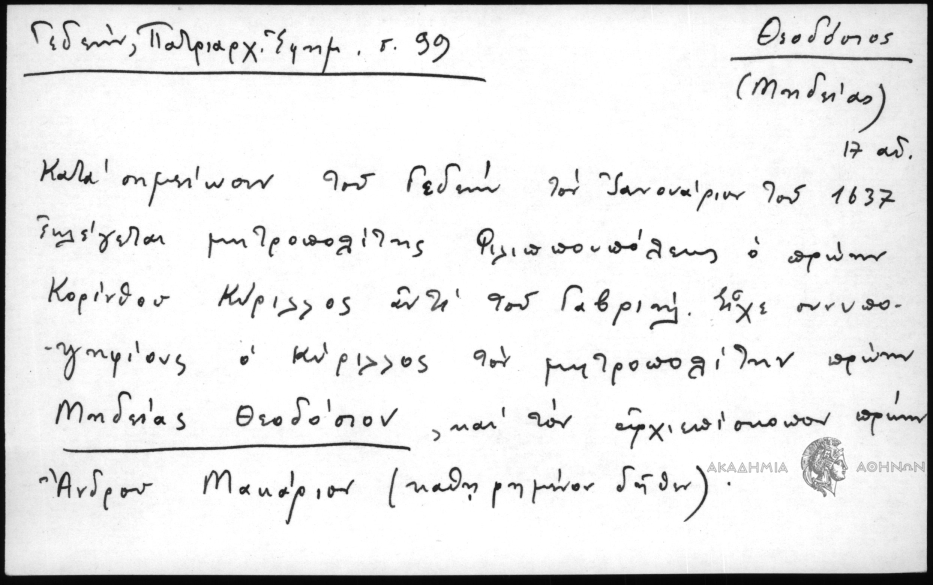 Γεδεών, Πατριαρχ. Ἐφημ. σ. 99
Θεοδόσιος
(Μηδείας)
17 αἰ.
Κατά σημείωσιν τοῦ Γεδεών τόν Ἰανουάριον τοῦ 1637
ἐκλέγεται μητροπολίτης Φιλιππουπόλεως ὁ πρώην
Κορίνθου Κύριλλος ἀντί τοῦ Γαβριήλ. Εἶχε συνυπο-
-ψηφίους ὁ Κύριλλος τόν μητροπολίτην πρώην
Μηδείας Θεοδόσιον, καί τόν ἀρχιεπίσκοπον πρώην
Ἄνδρου Μακάριον (καθῃρημένον δῆθεν).
ΑΚΑΔΗΜΙΑ ΑΘΗΝΩΝ